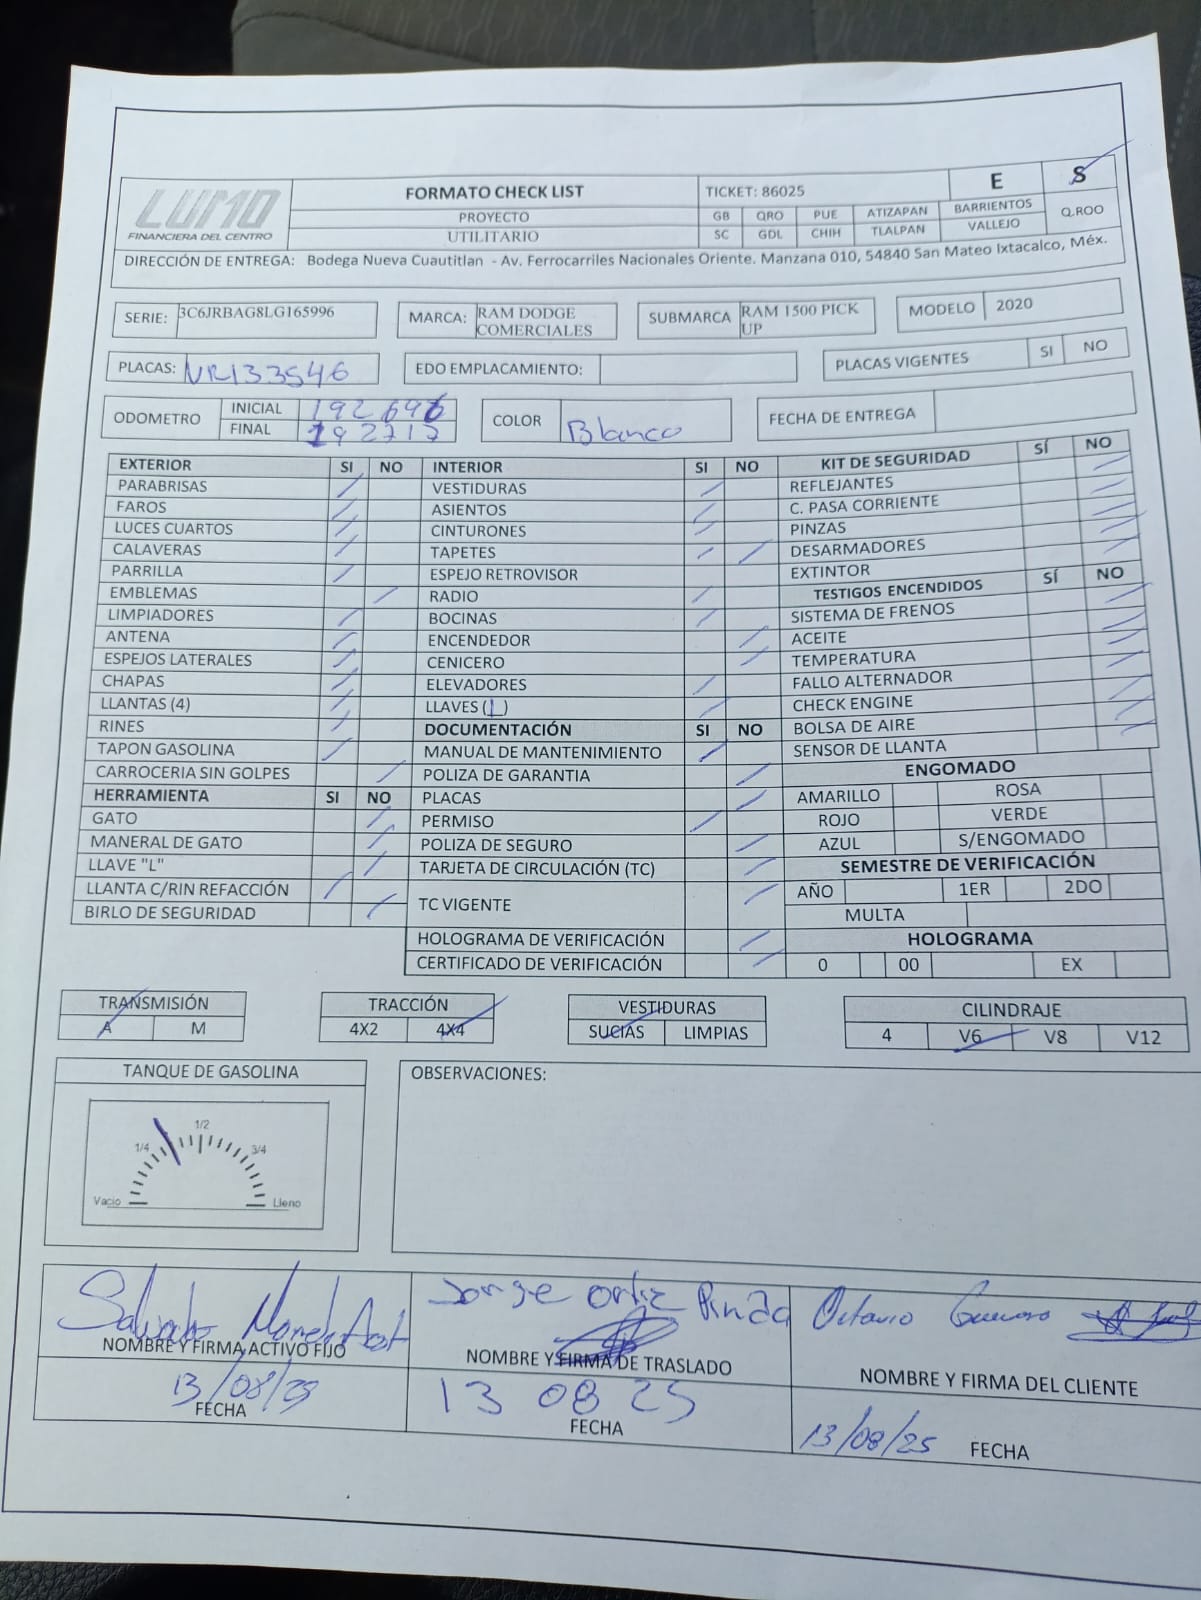 LUMO
FINANCIERA DEL CENTRO
FORMATO CHECK LIST
PROYECTO
UTILITARIO
TICKET: 86025
E S
GB QRO PUE ATIZAPAN BARRIENTOS Q.ROO
SC GDL CHIH TLALPAN VALLEJO
DIRECCIÓN DE ENTREGA: Bodega Nueva Cuautitlan - Av. Ferrocarriles Nacionales Oriente. Manzana 010, 54840 San Mateo Ixtacalco, Méx.
SERIE: 3C6JRBAG8LG165996
MARCA: RAM DODGE COMERCIALES
SUBMARCA RAM 1500 PICK UP
MODELO 2020
PLACAS: NR133546
EDO EMPLACAMIENTO:
PLACAS VIGENTES SI NO
ODOMETRO INICIAL 192696
FINAL 192717
COLOR Blanco
FECHA DE ENTREGA
EXTERIOR SI NO
PARABRISAS
FAROS
LUCES CUARTOS
CALAVERAS
PARRILLA
EMBLEMAS
LIMPIADORES
ANTENA
ESPEJOS LATERALES
CHAPAS
LLANTAS (4)
RINES
TAPON GASOLINA
CARROCERIA SIN GOLPES
HERRAMIENTA SI NO
GATO
MANERAL DE GATO
LLAVE "L"
LLANTA C/RIN REFACCIÓN
BIRLO DE SEGURIDAD
INTERIOR SI NO
VESTIDURAS
ASIENTOS
CINTURONES
TAPETES
ESPEJO RETROVISOR
RADIO
BOCINAS
ENCENDEDOR
CENICERO
ELEVADORES
LLAVES (1)
DOCUMENTACIÓN SI NO
MANUAL DE MANTENIMIENTO
POLIZA DE GARANTIA
PLACAS
PERMISO
POLIZA DE SEGURO
TARJETA DE CIRCULACIÓN (TC)
TC VIGENTE
HOLOGRAMA DE VERIFICACIÓN
CERTIFICADO DE VERIFICACIÓN
KIT DE SEGURIDAD SÍ NO
REFLEJANTES
C. PASA CORRIENTE
PINZAS
DESARMADORES
EXTINTOR
TESTIGOS ENCENDIDOS SÍ NO
SISTEMA DE FRENOS
ACEITE
TEMPERATURA
FALLO ALTERNADOR
CHECK ENGINE
BOLSA DE AIRE
SENSOR DE LLANTA
ENGOMADO
AMARILLO ROSA
ROJO VERDE
AZUL S/ENGOMADO
SEMESTRE DE VERIFICACIÓN
AÑO 1ER 2DO
MULTA
HOLOGRAMA
0 00 EX
TRANSMISIÓN
A M
TRACCIÓN
4X2 4X4
VESTIDURAS
SUCIAS LIMPIAS
CILINDRAJE
4 V6 V8 V12
TANQUE DE GASOLINA
1/4 1/2 3/4
Vacio Lleno
OBSERVACIONES:
Salvador
NOMBRE Y FIRMA ACTIVO FIJO
13/08/25
FECHA
Jorge Ortiz Pineda
NOMBRE Y FIRMA DE TRASLADO
13 08 25
FECHA
Octavio Guerrero
NOMBRE Y FIRMA DEL CLIENTE
13/08/25 FECHA